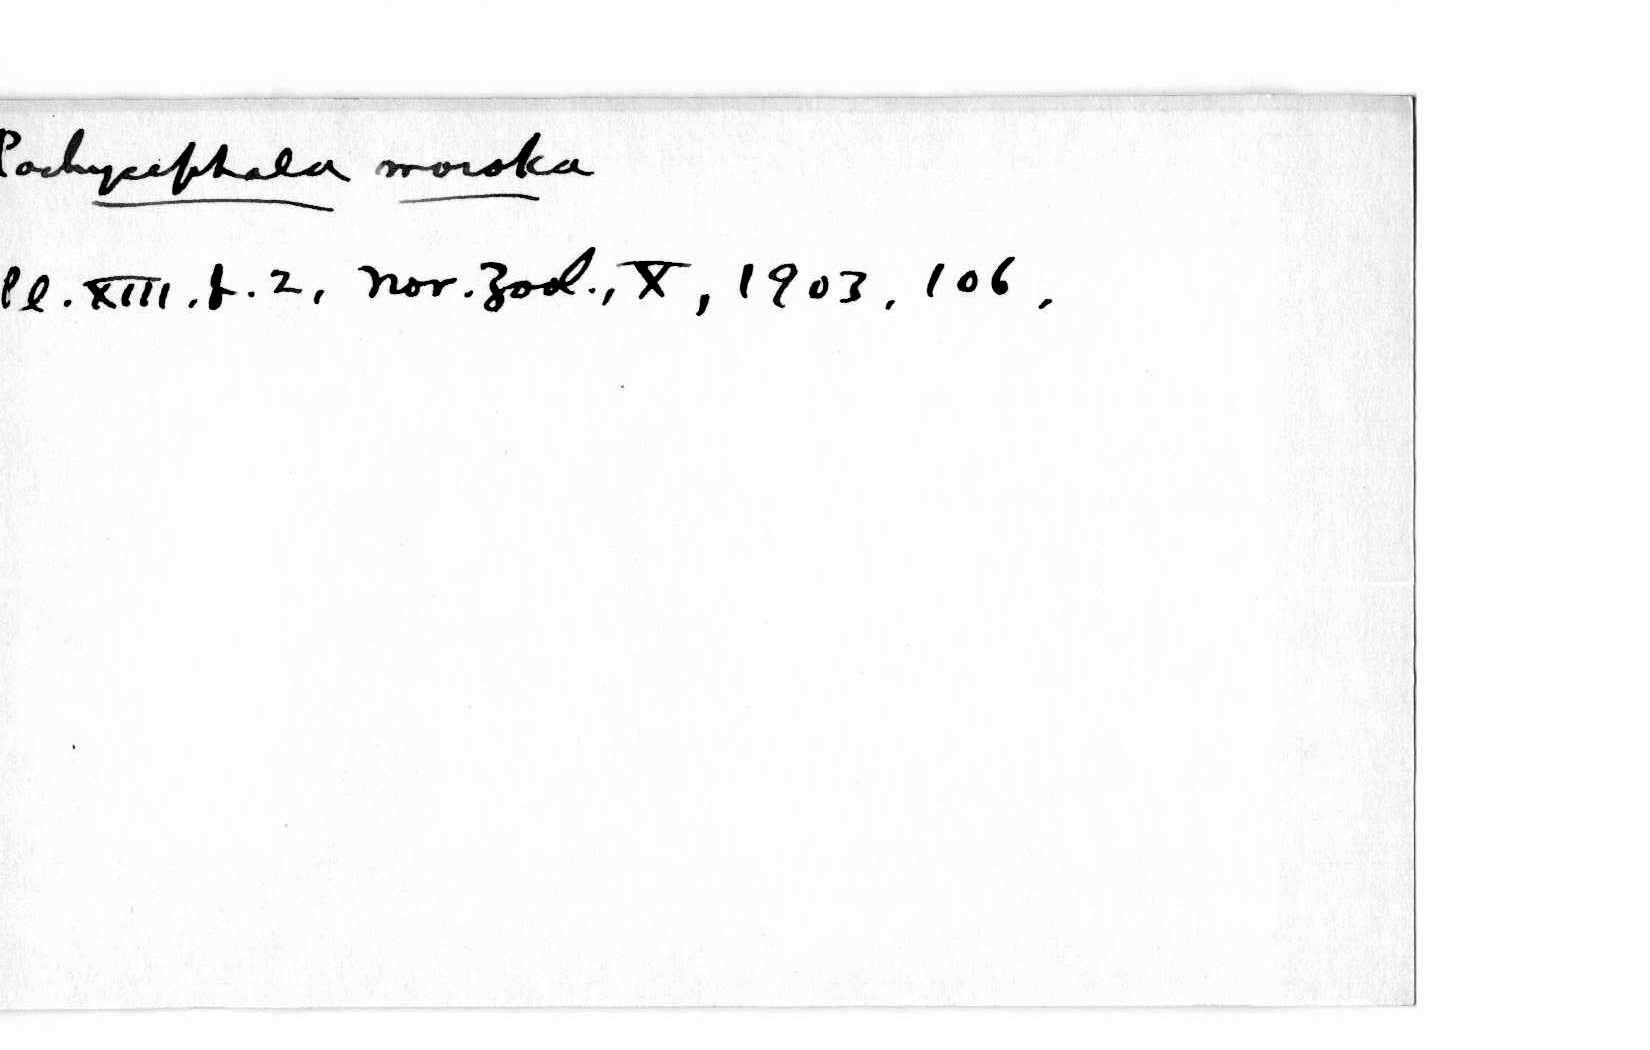 Pachycephala moroka
Pl. XIII. f. 2, Nov. Zool., X, 1903, 106,